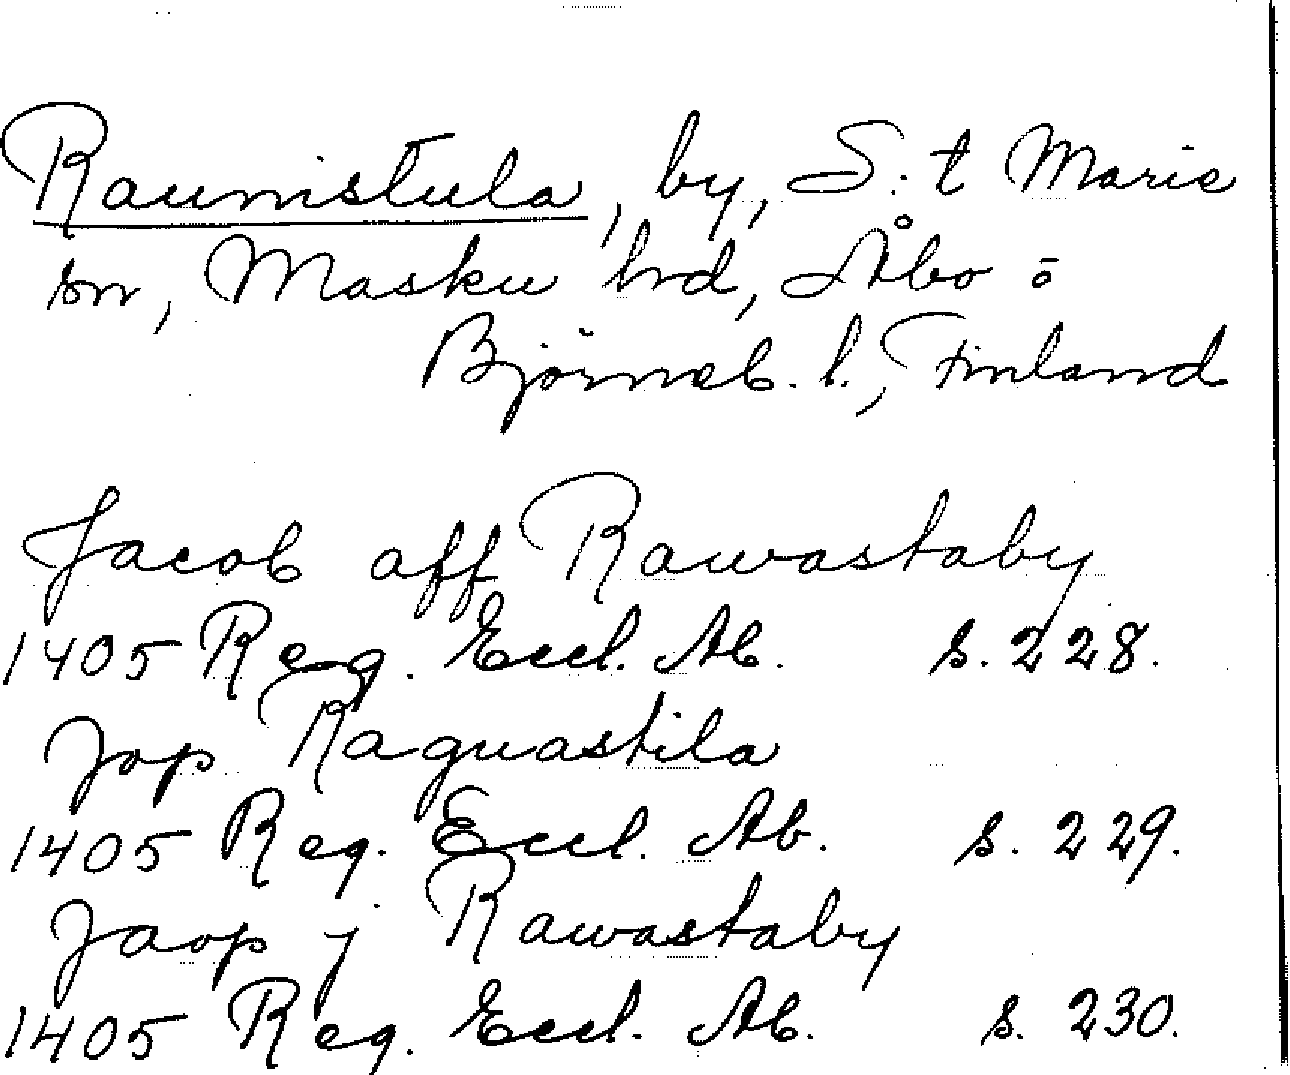 Raunistula, by, S:t Marie
sn, Masku hrd, Åbo o
Björneb. l., Finland
Jacob aff Rawastaby
1405 Reg. Eccl. Ab. s. 228.
Jop Raguastila
1405 Reg. Eccl. Ab. s. 229.
Jaop j Rawastaby
1405 Reg. Eccl. Ab. s. 230.